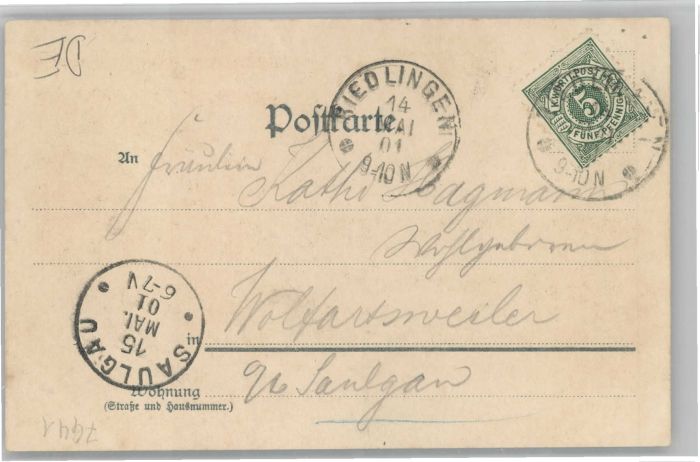 DE
RIEDLINGEN
14
MAI
01
9-10 N
K.WÜRTT.POST
5
FÜNF PFENNIG
9-10 N
Postkarte.
An Fräulein
Käthi Hagmann
Wohlgeboren
SAULGAU
15
MAI.
01
6-7 V
in Wolfartsweiler
Saulgau
Wohnung
(Straße und Hausnummer.)